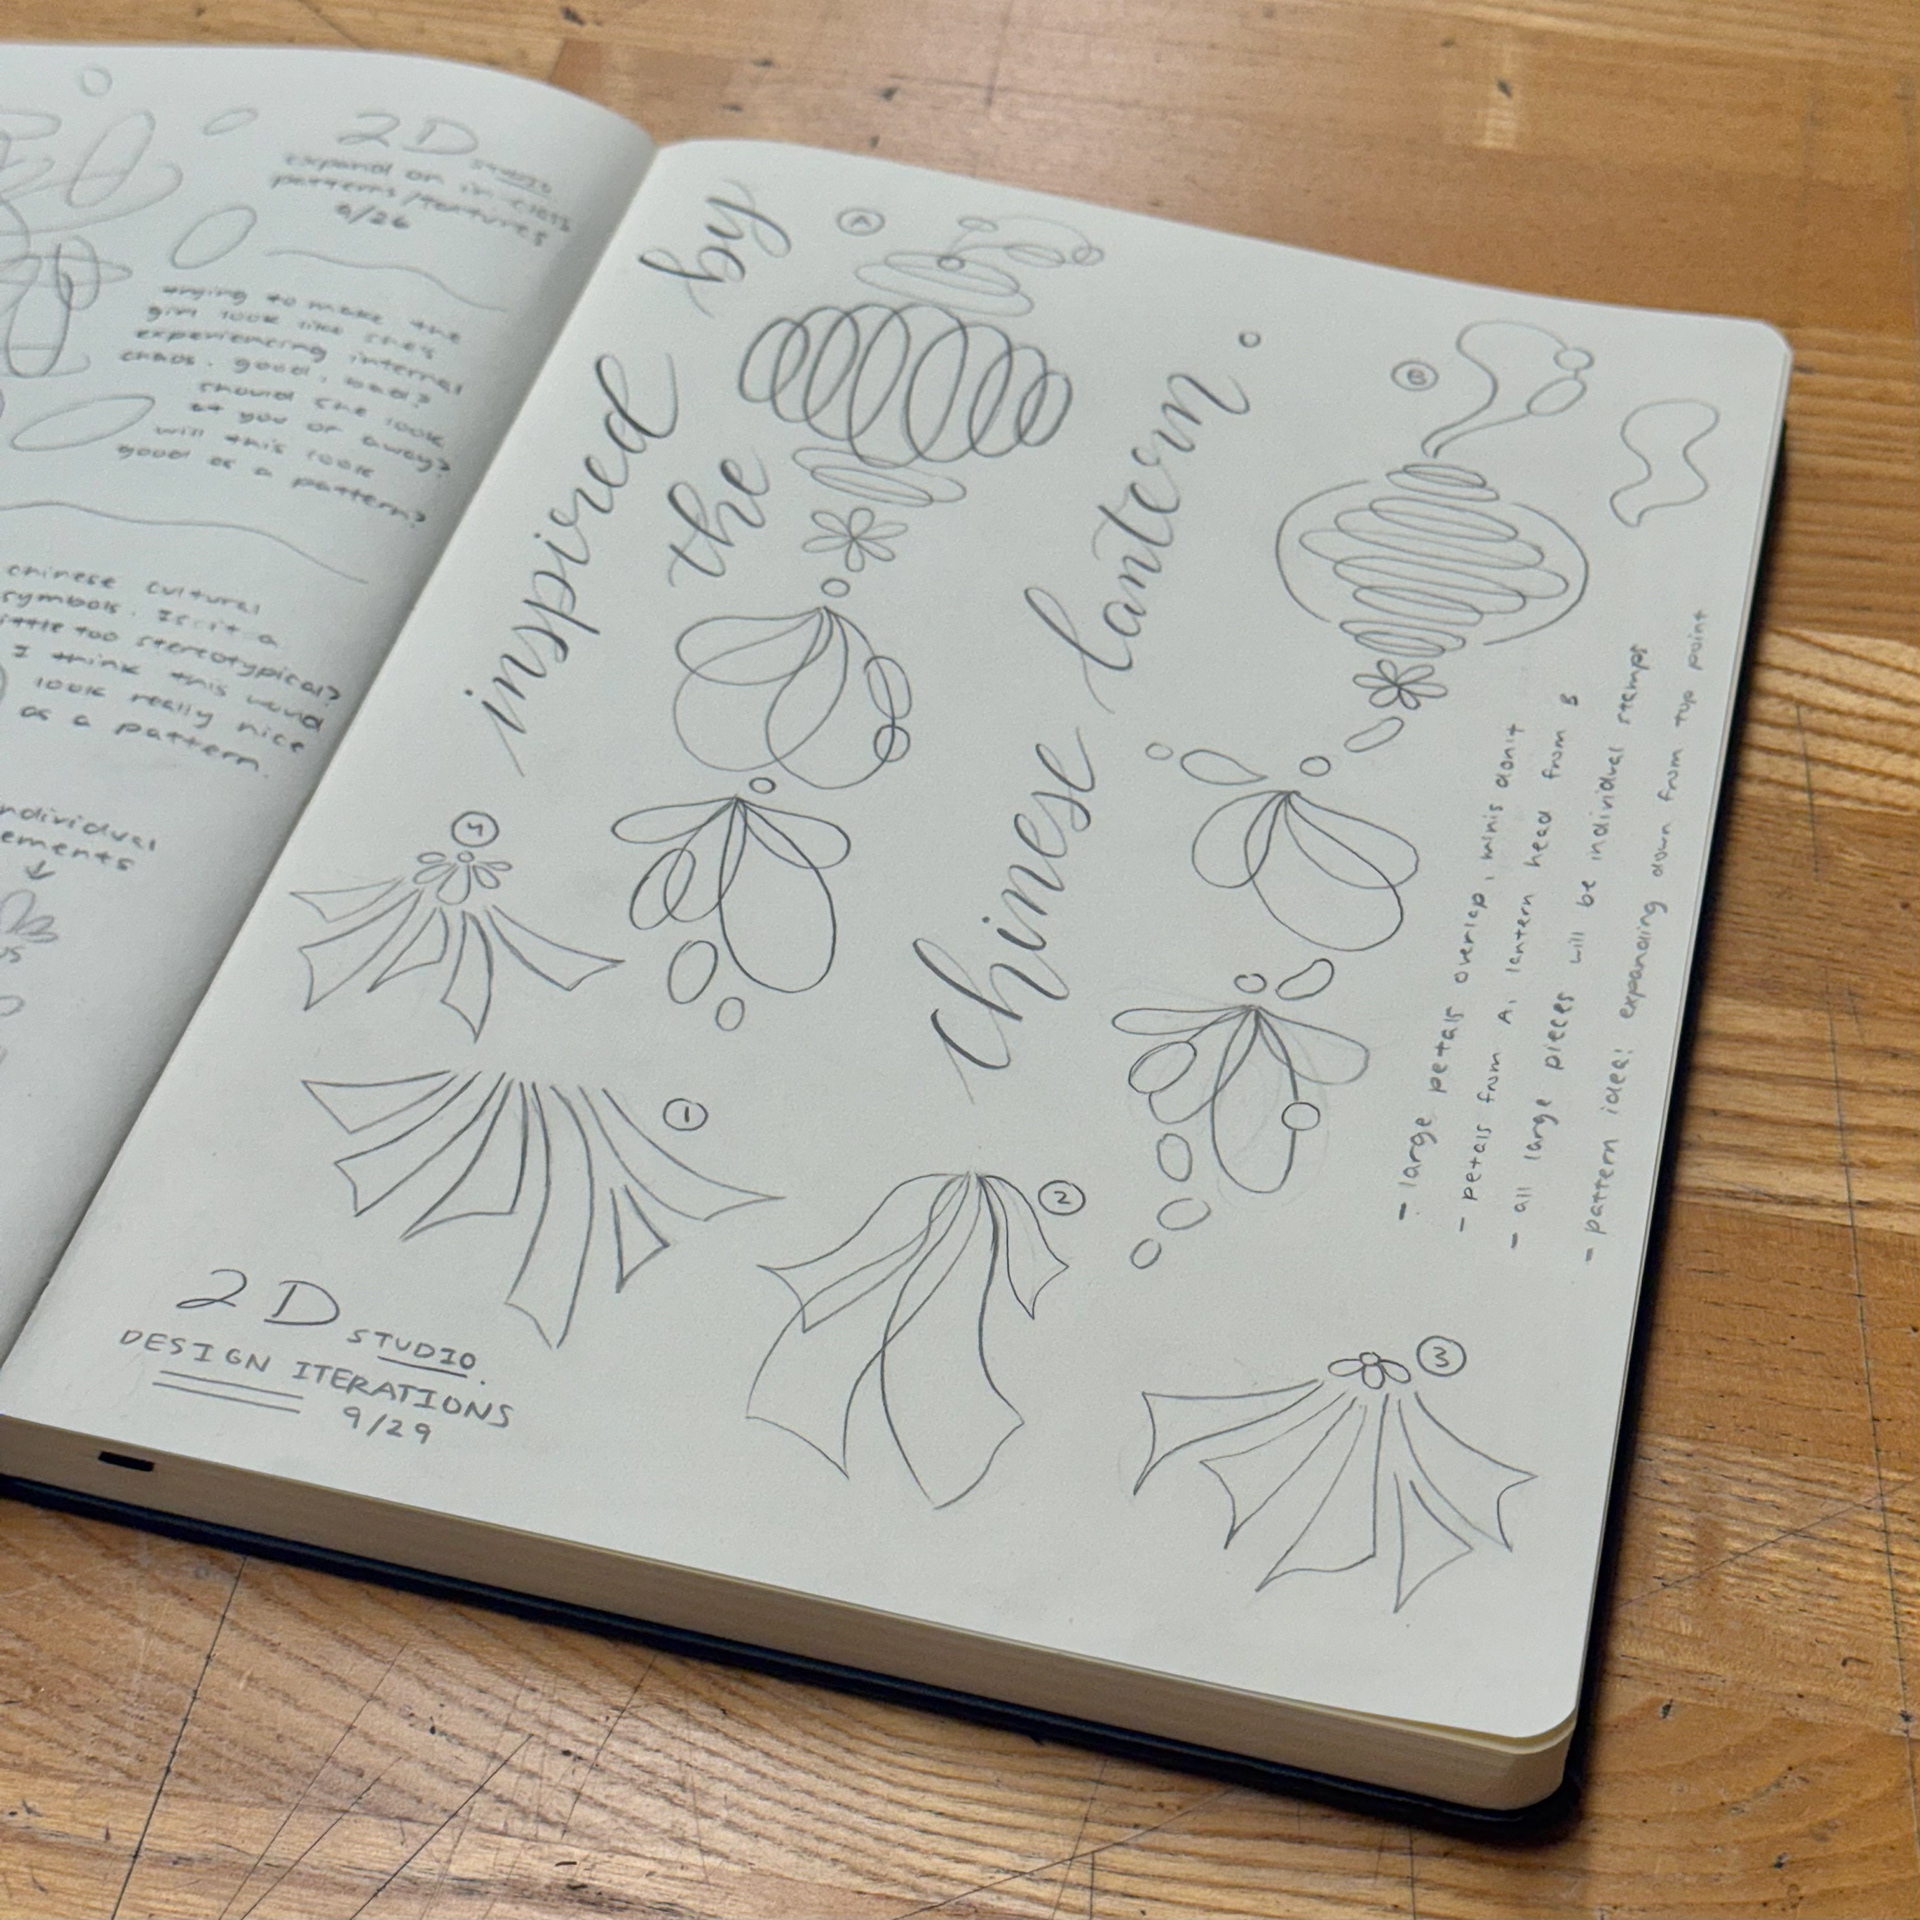 2D STUDIO
expand on in-class
patterns/textures
9/26
trying to make the
girl look like she's
experiencing internal
chaos. good, bad?
should she look
at you or away?
will this look
good as a pattern?
chinese cultural
symbols. Is it a
little too stereotypical?
I think this would
look really nice
as a pattern.
individual
ements
inspired by
the
chinese lantern.
A
B
- large petals overlap, minis don't
- petals from A, lantern head from B
- all large pieces will be individual stamps
- pattern idea: expanding down from top point
1
2
3
2D STUDIO.
DESIGN ITERATIONS
9/29